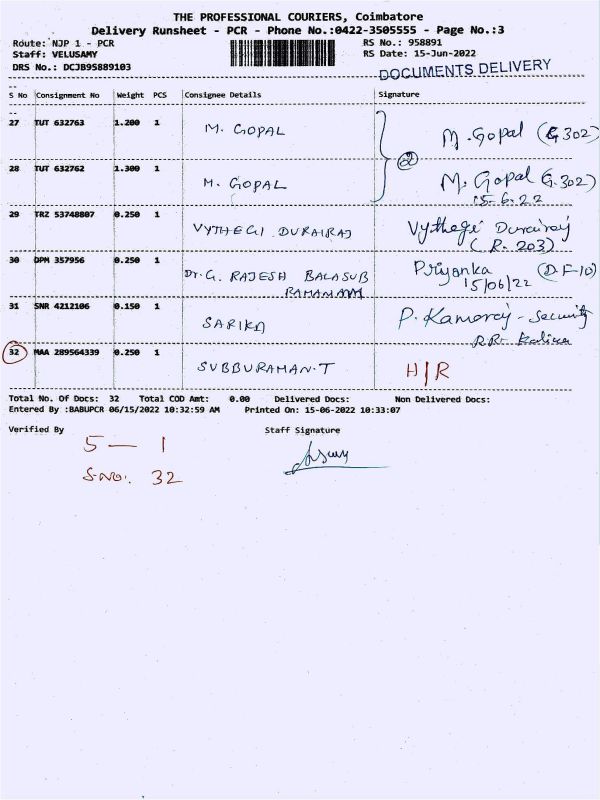 THE PROFESSIONAL COURIERS, Coimbatore
Delivery Runsheet - PCR - Phone No.:0422-3505555 - Page No.:3
Route: NJP 1 - PCR RS No.: 958891
Staff: VELUSAMY RS Date: 15-Jun-2022
DRS No.: DCJB95889103 DOCUMENTS DELIVERY
S No Consignment No Weight PCS Consignee Details Signature
27 TUT 632763 1.200 1 M. GOPAL M. Gopal (G 302)
28 TUT 632762 1.300 1 M. GOPAL 2 M. Gopal (G.302)
15.6.22
29 TRZ 53748807 0.250 1 VYTHEGI DURAIRAJ Vythegi Durairaj
(R. 203)
30 OPM 357956 0.250 1 Dr. G. RAJESH BALASUB Priyanka (D.F-10)
RAMANIAM 15/06/22
31 SNR 4212106 0.150 1 SARIKA P. Kamaraj - Security
32 MAA 289564339 0.250 1 SUBBURAMAN.T H/R
Total No. Of Docs: 32 Total COD Amt: 0.00 Delivered Docs: Non Delivered Docs:
Entered By :BABUPCR 06/15/2022 10:32:59 AM Printed On: 15-06-2022 10:33:07
Verified By Staff Signature
5 — 1
S.No. 32